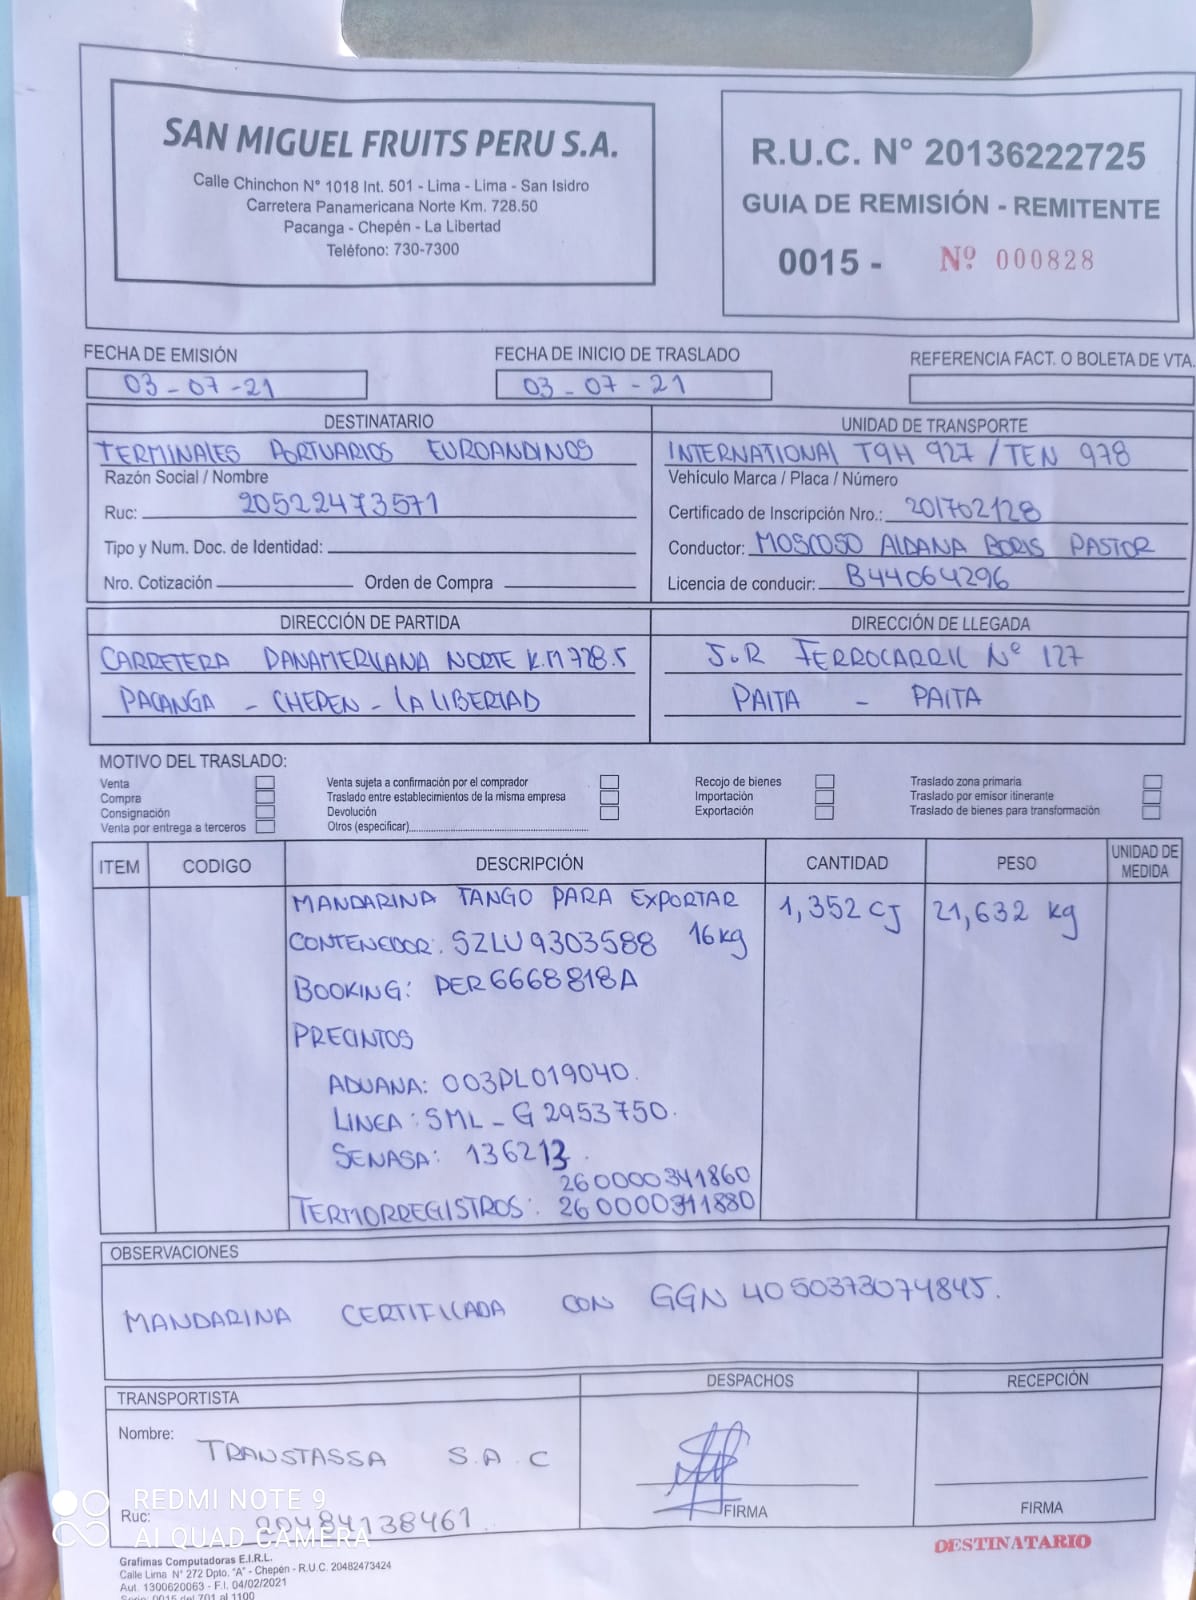 SAN MIGUEL FRUITS PERU S.A.
Calle Chinchon N° 1018 Int. 501 - Lima - Lima - San Isidro
Carretera Panamericana Norte Km. 728.50
Pacanga - Chepén - La Libertad
Teléfono: 730-7300
R.U.C. N° 20136222725
GUIA DE REMISIÓN - REMITENTE
0015 - Nº 000828
FECHA DE EMISIÓN
03-07-21
FECHA DE INICIO DE TRASLADO
03-07-21
REFERENCIA FACT. O BOLETA DE VTA.
DESTINATARIO
TERMINALES PORTUARIOS EUROANDINOS
Razón Social / Nombre
Ruc: 20522473571
Tipo y Num. Doc. de Identidad:
Nro. Cotización Orden de Compra
UNIDAD DE TRANSPORTE
INTERNATIONAL T9H 927 / TEN 978
Vehículo Marca / Placa / Número
Certificado de Inscripción Nro.: 201702128
Conductor: MOSCOSO ALDANA BORIS PASTOR
Licencia de conducir: B44064296
DIRECCIÓN DE PARTIDA
CARRETERA PANAMERICANA NORTE K.M 728.5
PACANGA - CHEPEN - LA LIBERTAD
DIRECCIÓN DE LLEGADA
J.R FERROCARRIL Nº 127
PAITA - PAITA
MOTIVO DEL TRASLADO:
Venta
Compra
Consignación
Venta por entrega a terceros
Venta sujeta a confirmación por el comprador
Traslado entre establecimientos de la misma empresa
Devolución
Otros (especificar)
Recojo de bienes
Importación
Exportación
Traslado zona primaria
Traslado por emisor itinerante
Traslado de bienes para transformación
ITEM CODIGO DESCRIPCIÓN CANTIDAD PESO UNIDAD DE MEDIDA
MANDARINA TANGO PARA EXPORTAR 1,352 CJ 21,632 kg
CONTENEDOR: SZLU9303588 16kg
BOOKING: PER6668818A
PRECINTOS
ADUANA: 003PL019040.
LINEA: SML-G2953750.
SENASA: 136213.
260000341860
TERMORREGISTROS: 260000311880
OBSERVACIONES
MANDARINA CERTIFICADA CON GGN 4050373074845.
TRANSPORTISTA
Nombre: TRANSTASSA S.A.C
Ruc: 20484138461
DESPACHOS
FIRMA
RECEPCIÓN
FIRMA
DESTINATARIO
Grafimas Computadoras E.I.R.L.
Calle Lima N° 272 Dpto. "A" - Chepén - R.U.C. 20482473424
Aut. 1300620063 - F.I. 04/02/2021
Serie: 0015 del 701 al 1100
REDMI NOTE 9
AI QUAD CAMERA